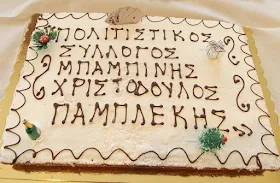 ΠΟΛΙΤΙΣΤΙΚΟΣ
ΣΥΛΛΟΓΟΣ
ΜΠΑΜΠΙΝΗΣ
ΧΡΙΣΤΟΔΟΥΛΟΣ
ΠΑΜΠΛΕΚΗΣ